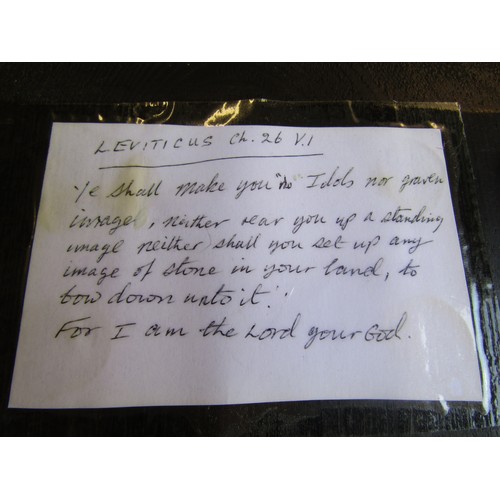 LEVITICUS Ch. 26 V.1
Ye shall make you "no" Idols nor graven
image, neither rear you up a standing
image neither shall you set up any
image of stone in your land, to
bow down unto it."
For I am the Lord your God.